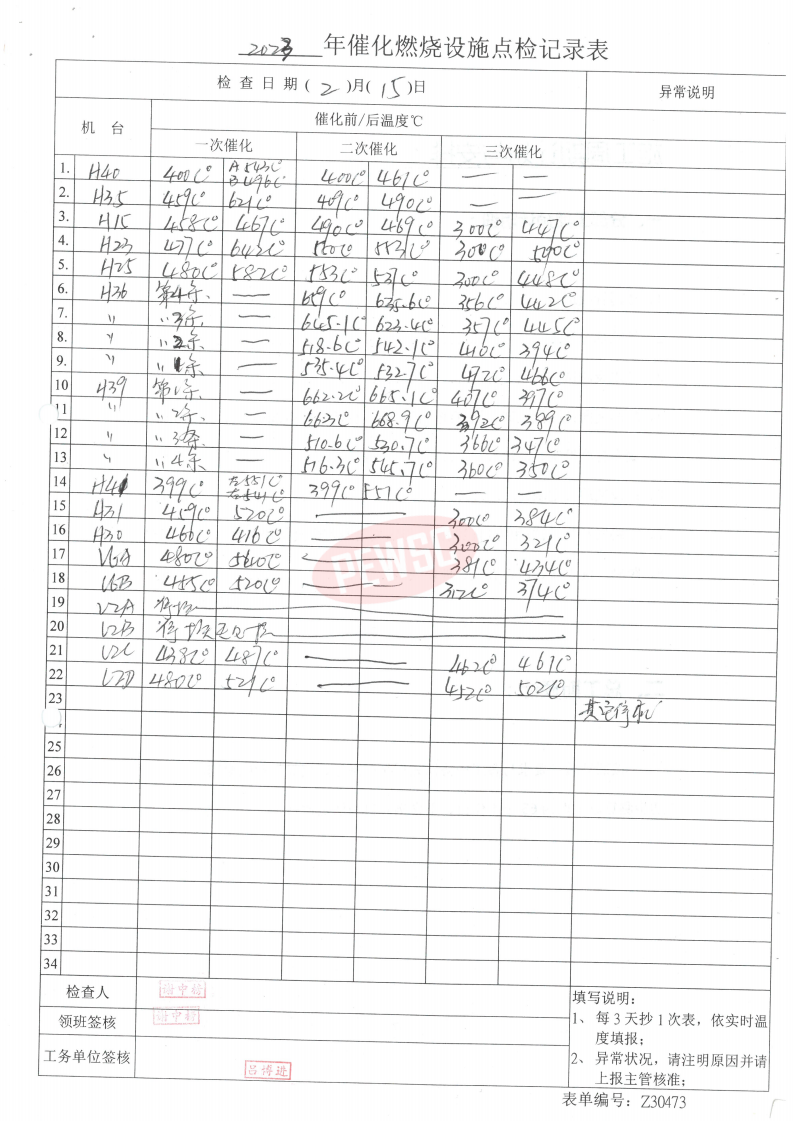 2023 年催化燃烧设施点检记录表
检 查 日 期 ( 2 )月( 15 )日 异常说明
机 台 催化前/后温度℃
一次催化 二次催化 三次催化
1. H40 400℃ A 543℃ B 496℃ 400℃ 461℃ — —
2. H35 459℃ 621℃ 409℃ 490℃ — —
3. H15 458℃ 467℃ 490℃ 469℃ 300℃ 447℃
4. H23 477℃ 642℃ 550℃ 553℃ 300℃ 590℃
5. H25 480℃ 582℃ 553℃ 537℃ 300℃ 448℃
6. H36 第4条. — 659℃ 635.6℃ 356℃ 442℃
7. 〃 〃3条. — 645.1℃ 623.4℃ 357℃ 445℃
8. 〃 〃2条. — 518.6℃ 542.1℃ 410℃ 394℃
9. 〃 〃1条. — 535.4℃ 532.7℃ 472℃ 466℃
10 H39 第1条. — 662.2℃ 665.1℃ 407℃ 397℃
11 〃 〃2条. — 663℃ 668.9℃ 392℃ 389℃
12 〃 〃3条. — 510.6℃ 530.7℃ 366℃ 347℃
13 〃 〃4条. — 516.3℃ 545.7℃ 360℃ 350℃
14 H41 399℃ 左551℃ 右541℃ 399℃ 551℃ — —
15 H31 459℃ 520℃ — 300℃ 384℃
16 H30 460℃ 416℃ — 300℃ 321℃
17 V6A 480℃ 560℃ — 381℃ 434℃
18 V6B 455℃ 520℃ — 312℃ 374℃
19 V2A —
20 V2B —
21 V2C 438℃ 487℃ — 462℃ 461℃
22 V2D 480℃ 521℃ — 452℃ 502℃
23 其它停机
25
26
27
28
29
30
31
32
33
34
PEWSC
检查人
领班签核
工务单位签核 吕博进
填写说明:
1、 每 3 天抄 1 次表，依实时温
度填报;
2、 异常状况，请注明原因并请
上报主管核准;
表单编号: Z30473